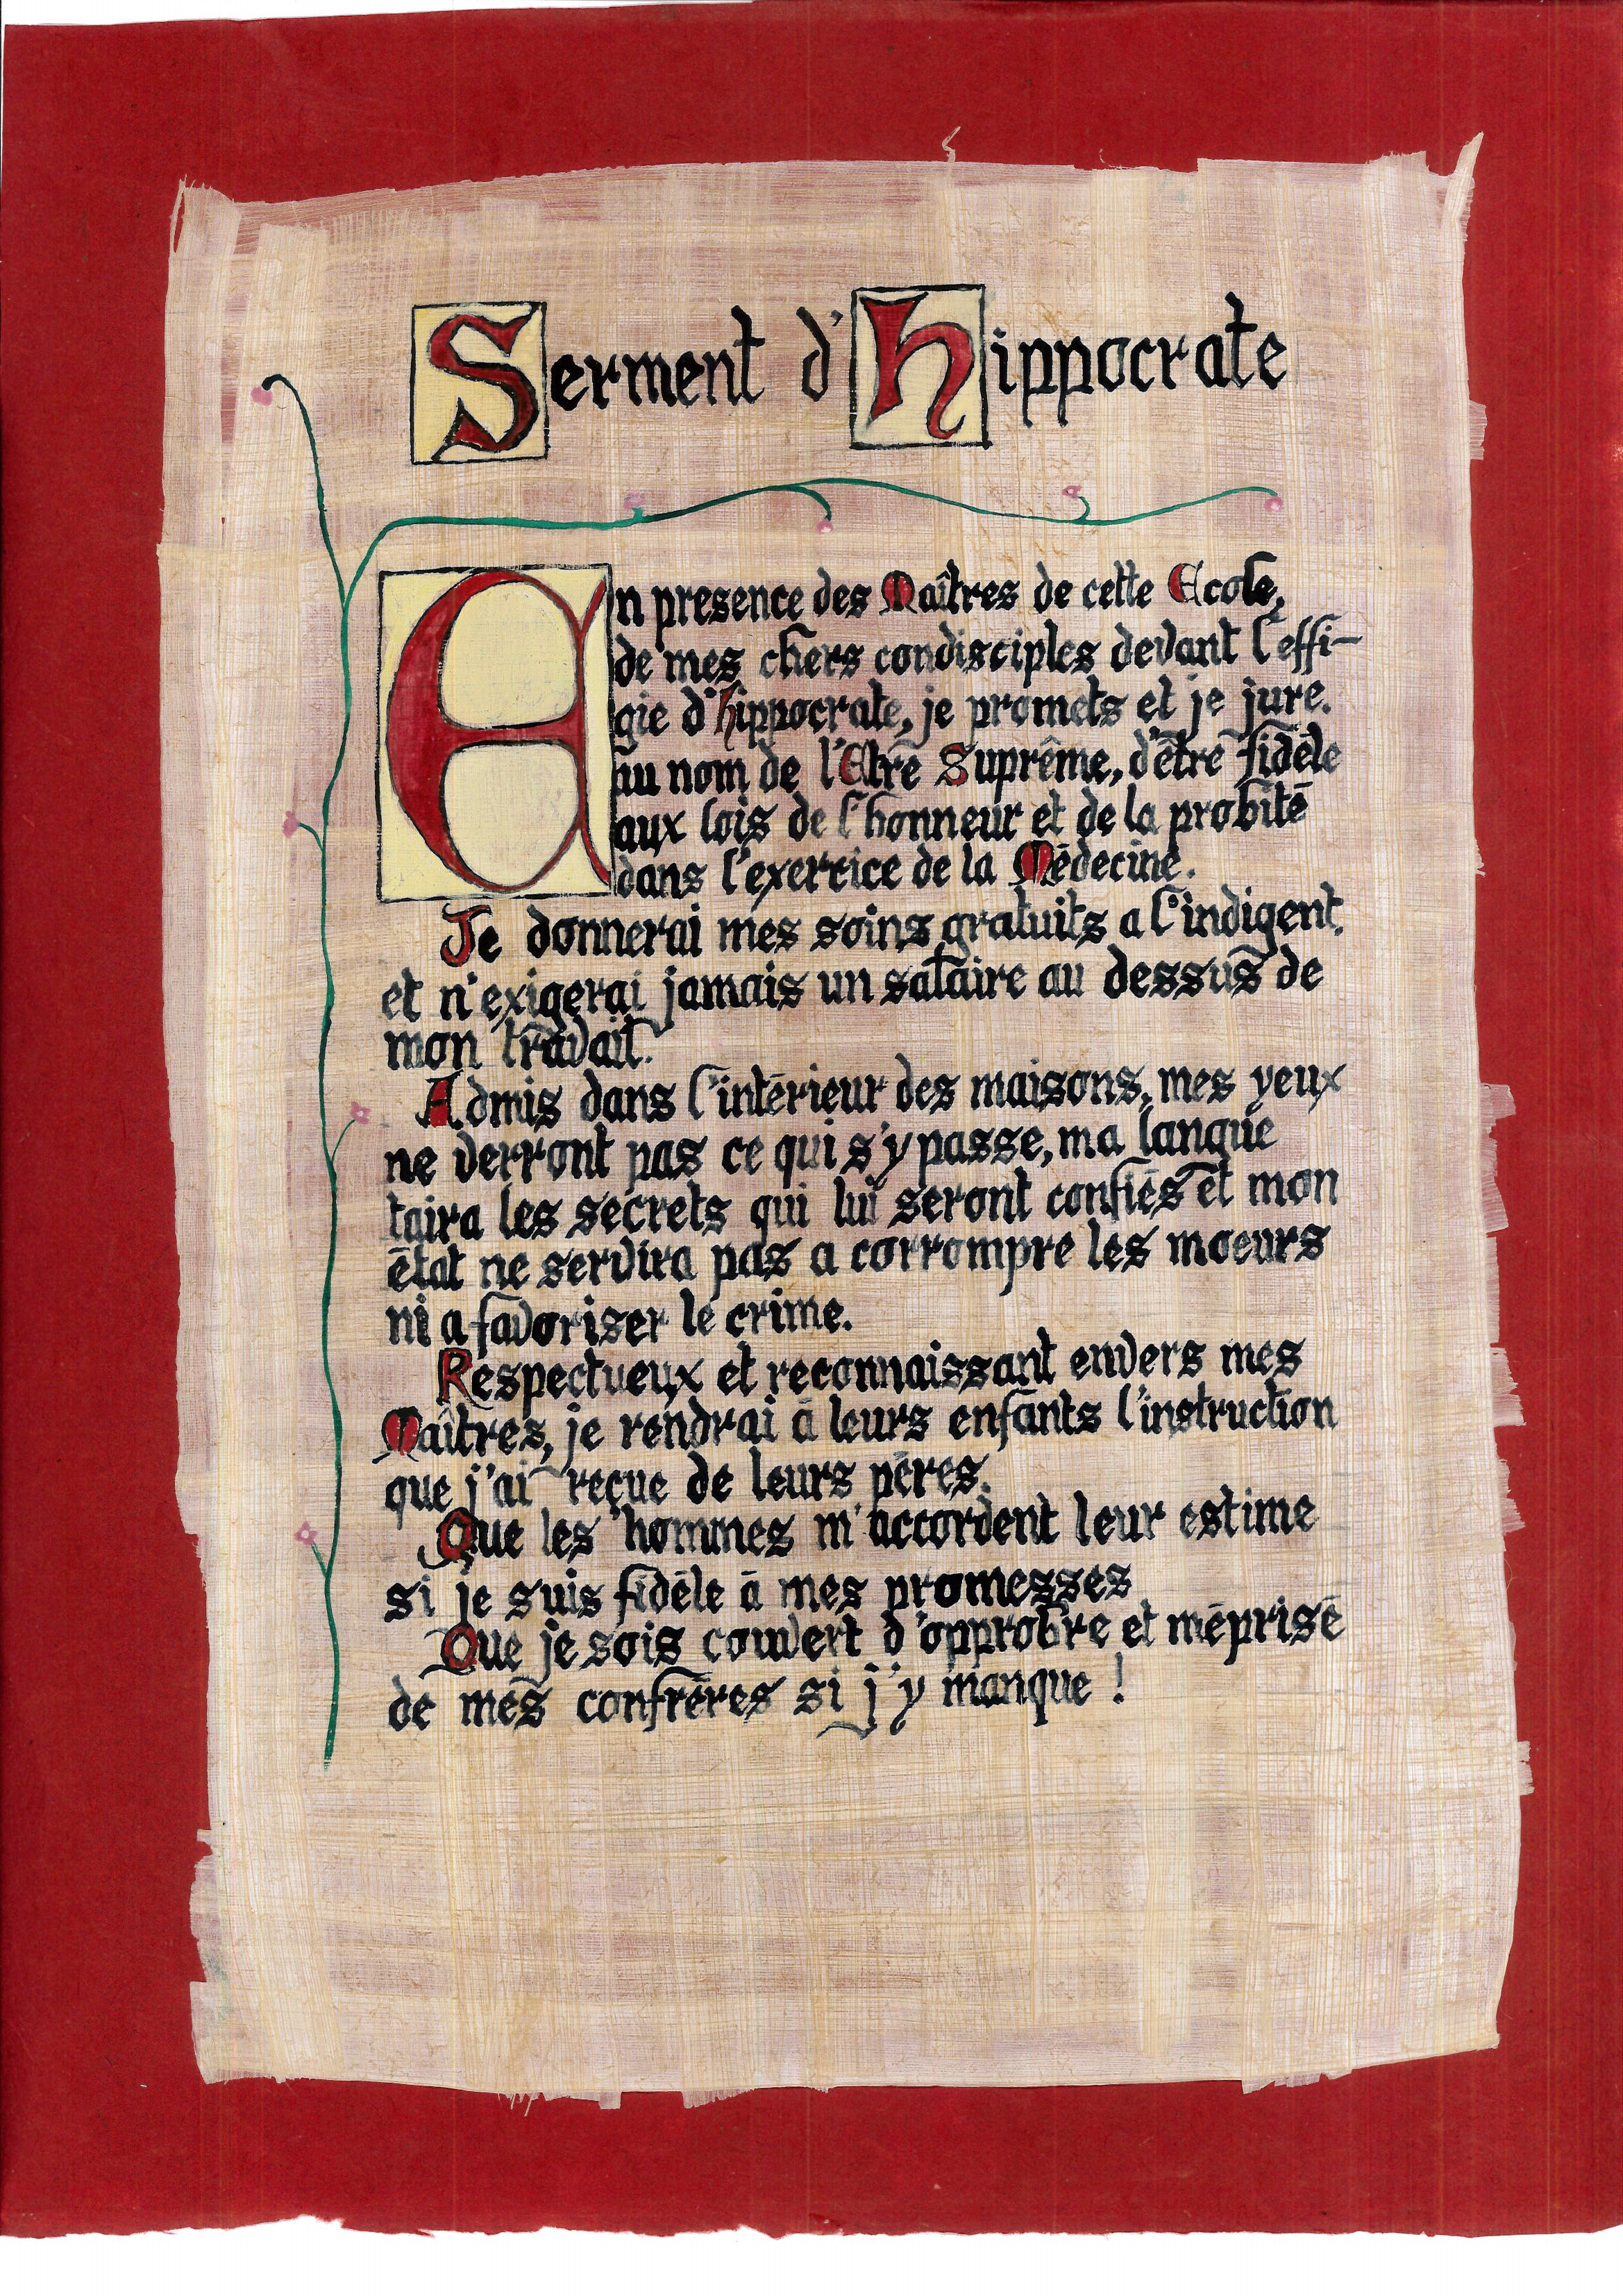 Serment d'Hippocrate
En presence des Maîtres de cette Ecole,
de mes chers condisciples devant l'effi-
gie d'hippocrate, je promets et je jure.
au nom de l'Etre Suprême, d'être fidèle
aux lois de l'honneur et de la probité
dans l'exercice de la Médecine.
Je donnerai mes soins gratuits a l'indigent,
et n'exigerai jamais un salaire au dessus de
mon travail.
Admis dans l'intérieur des maisons, mes yeux
ne verront pas ce qui s'y passe, ma langue
taira les secrets qui lui seront confiés et mon
état ne servira pas a corrompre les moeurs
ni a favoriser le crime.
Respectueux et reconnaissant envers mes
Maîtres, je rendrai à leurs enfants l'instruction
que j'ai reçue de leurs pères.
Que les hommes m'accordent leur estime
si je suis fidèle à mes promesses
Que je sois couvert d'opprobre et méprisé
de mes confrères si j'y manque !